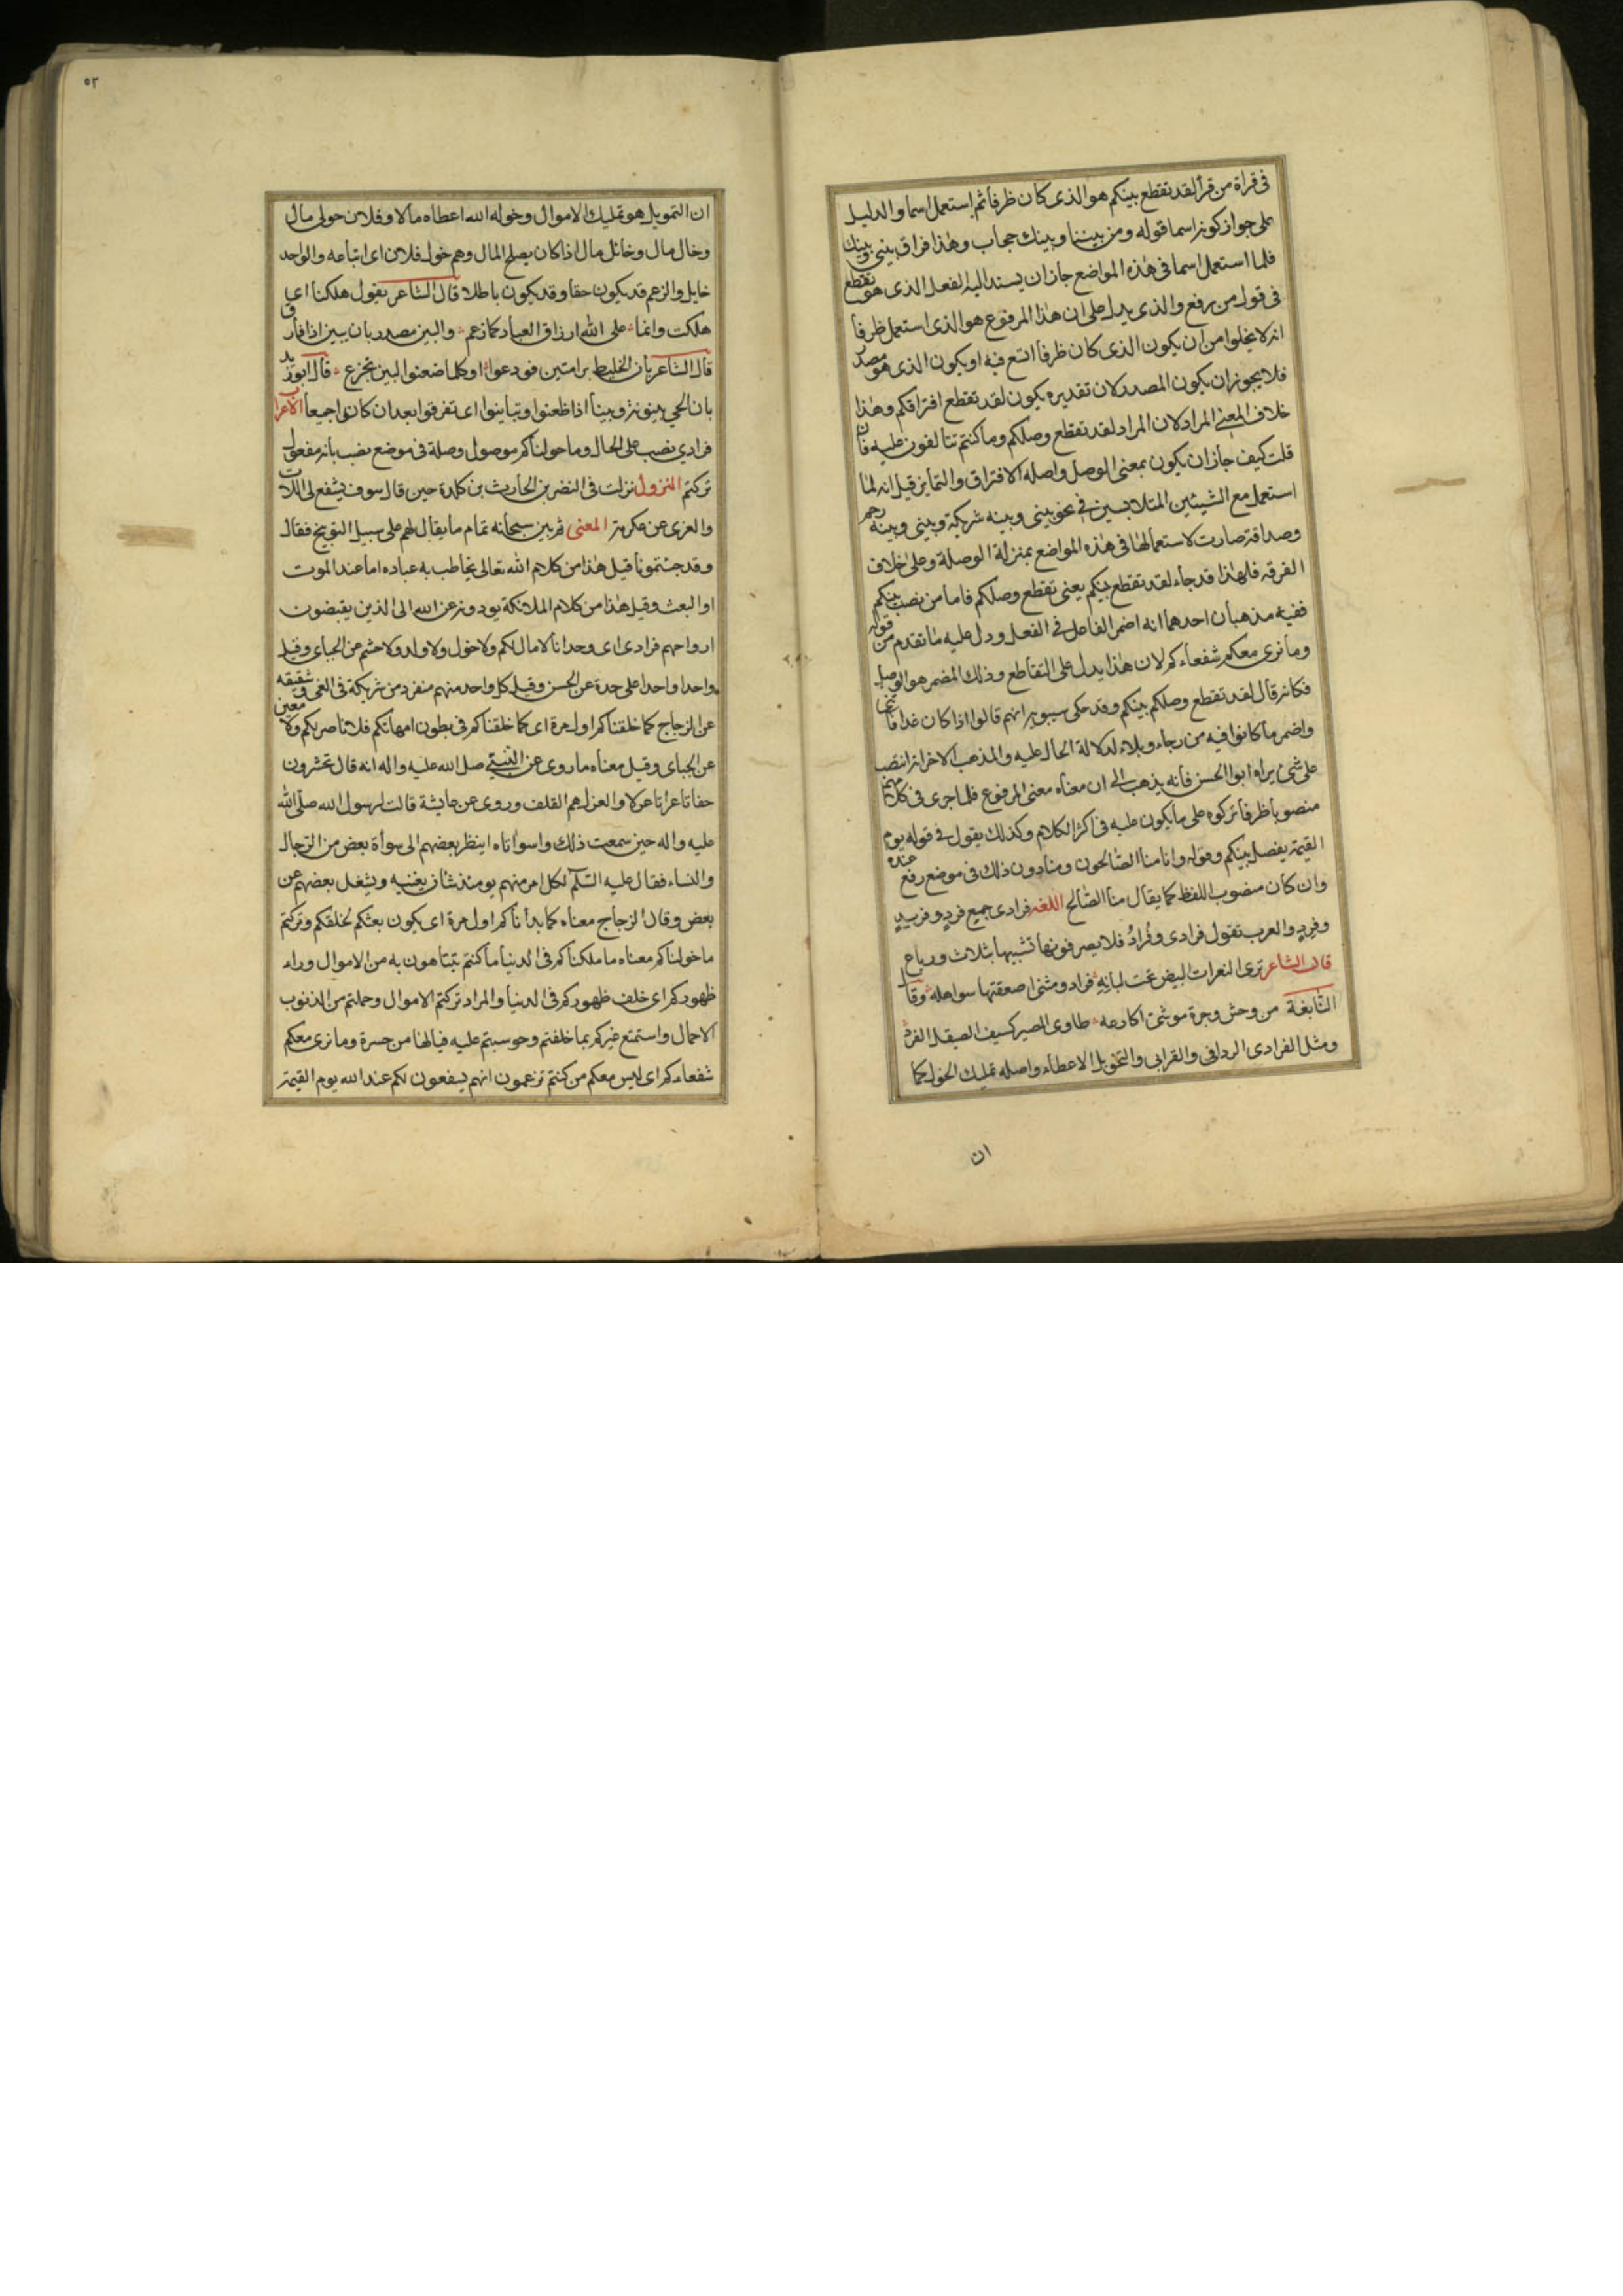 فى قراة من قرأ لقد تقطع بينكم هو الذى كان ظرفا ثم استعمل اسما والدليل
على جواز كونه اسما قوله ومن بيننا وبينك حجاب وهذا فراق بينى وبينك
فلما استعمل اسما فى هذه المواضع جاز ان يسند اليه الفعل الذى هو تقطع
فى قول من يرفع والذى يدل على ان هذا المرفوع هو الذى استعمل ظرفا
انه لا يخلوا من ان يكون الذى كان ظرفا اتسع فيه او يكون الذى هو مصدر
فلا يجوز ان يكون المصدر لان تقديره يكون لقد تقطع افتراقكم وهذا
خلاف المعنى المراد لان المراد لقد تقطع وصلكم وما كنتم تتالفون عليه فان
قلت كيف جاز ان يكون بمعنى الوصل واصله الافتراق والتمايز قيل انه لما
استعمل مع الشيئين المتلابسين فى نحو بينى وبينه شركة وبينى وبينه رحم
وصداقة صارت لاستعمالها فى هذه المواضع بمنزلة الوصلة وعلى خلاف
الفرقة فلهذا قد جاء لقد تقطع بينكم يعنى تقطع وصلكم فاما من نصب بينكم
ففيه مذهبان احدهما انه اضمر الفاعل فى الفعل ودل عليه ما تقدم من قوله
وما نرى معكم شفعاءكم لان هذا يدل على التقاطع وذلك المضمر هو الوصل
فكانه قال لقد تقطع وصلكم بينكم وقد حكى سيبويه انهم قالوا اذا كان غدا فاتنى
واضمر ما كانوا فيه من رجاء وبلاء لدلالة الحال عليه والمذهب الاخر انه انتصب
على شئ يراه ابوا الحسن فانه يذهب الى ان معناه معنى المرفوع فلما جرى فى كلامهم
منصوبا ظرفا تركوه على ما يكون عليه فى اكثر الكلام وكذلك يقول فى قوله يوم
القيمة يفصل بينكم وقوله وانا منا الصالحون ومنا دون ذلك فى موضع رفع عنده
وان كان منصوب اللفظ كما يقال منا الصالح اللغه فرادى جميع فرد وفريد
وفرد والعرب تقول فرادى وفراد فلا يصرفونها تشبيها بثلاث ورباع
قال الشاعر ترى النعرات البيض تحت لبانه فراد ومثنى اصعقتها سواهله وقال
النابغة من وحش وجرة موشى اكارعه طاوى المصير كسيف الصيقل الفرد
ومثل الفرادى الردافى والقرابى والتخويل الاعطاء واصله تمليك الخول كما
ان
٥٢
ان التمويل هو تمليك الاموال وخوله الله اعطاه مالا وفلان خولى مال
وخال مال وخائل مال اذا كان يصلح المال وهم خول فلان اى اتباعه والواحد
خايل والزعم قد يكون حقا وقد يكون باطلا قال الشاعر يقول هلكنا
هلكت وانما على الله ارزاق العباد كما زعم والبين مصدر بان يبين اذا فارق
قال الشاعر بان الخليط برامتين فودعوا او كلما ضعنوا البين تجزع قال ابو زيد
بان الحى بينونة وبينا اذا ظعنوا وتباينوا اى تفرقوا بعد ان كانوا جميعا الاعراب
فرادي نصب على الحال وما خولناكم موصول وصلة فى موضع نصب بانه مفعول
تركتم النزول نزلت فى النضر بن الحارث بن كلدة حين قال سوف يشفع لى اللات
والعزى عن عكرمة المعنى ثم بين سبحانه تمام ما يقال لهم على سبيل التوبيخ فقال
وقد جئتمونا قيل هذا من كلام الله تعالى يخاطب به عباده اما عند الموت
او البعث وقيل هذا من كلام الملائكة يودونه عن الله الى الذين يقبضون
ارواحهم فرادى اى وحدانا لا مال لكم ولا خول ولا ولد ولا حشم عن الجباى وقيل
واحدا واحدا على حدة عن الحسن وقيل كل واحد منهم منفرد من شريكه فى الغى وشقيقه
عن الزجاج كما خلقناكم اول مرة اى كما خلقناكم فى بطون امهاتكم فلا ناصر لكم ولا معين
عن الجباى وقيل معناه ما روى عن النبى صلى الله عليه واله انه قال تحشرون
حفاتا عراتا عرلا والعزل هم القلف وروى عن عايشة قالت لرسول الله صلى الله
عليه واله حين سمعت ذلك واسواتاه اينظر بعضهم الى سوأة بعض من الرجال
والنساء فقال عليه السلم لكل امر منهم يومئذ شان يغنيه ويشغل بعضهم عن
بعض وقال الزجاج معناه كما بدأناكم اول مرة اى يكون بعثكم كخلقكم وتركتم
ما خولناكم معناه ما ملكناكم فى الدنيا ما كنتم تتباهون به من الاموال وراء
ظهوركم اى خلف ظهوركم فى الدنيا والمراد تركتم الاموال وحملتم من الذنوب
الاحمال واستمتع غيركم بما خلفتم وحوسبتم عليه فيالها من حسرة وما نرى معكم
شفعاءكم اى ليس معكم من كنتم تزعمون انهم يشفعون لكم عند الله يوم القيمة